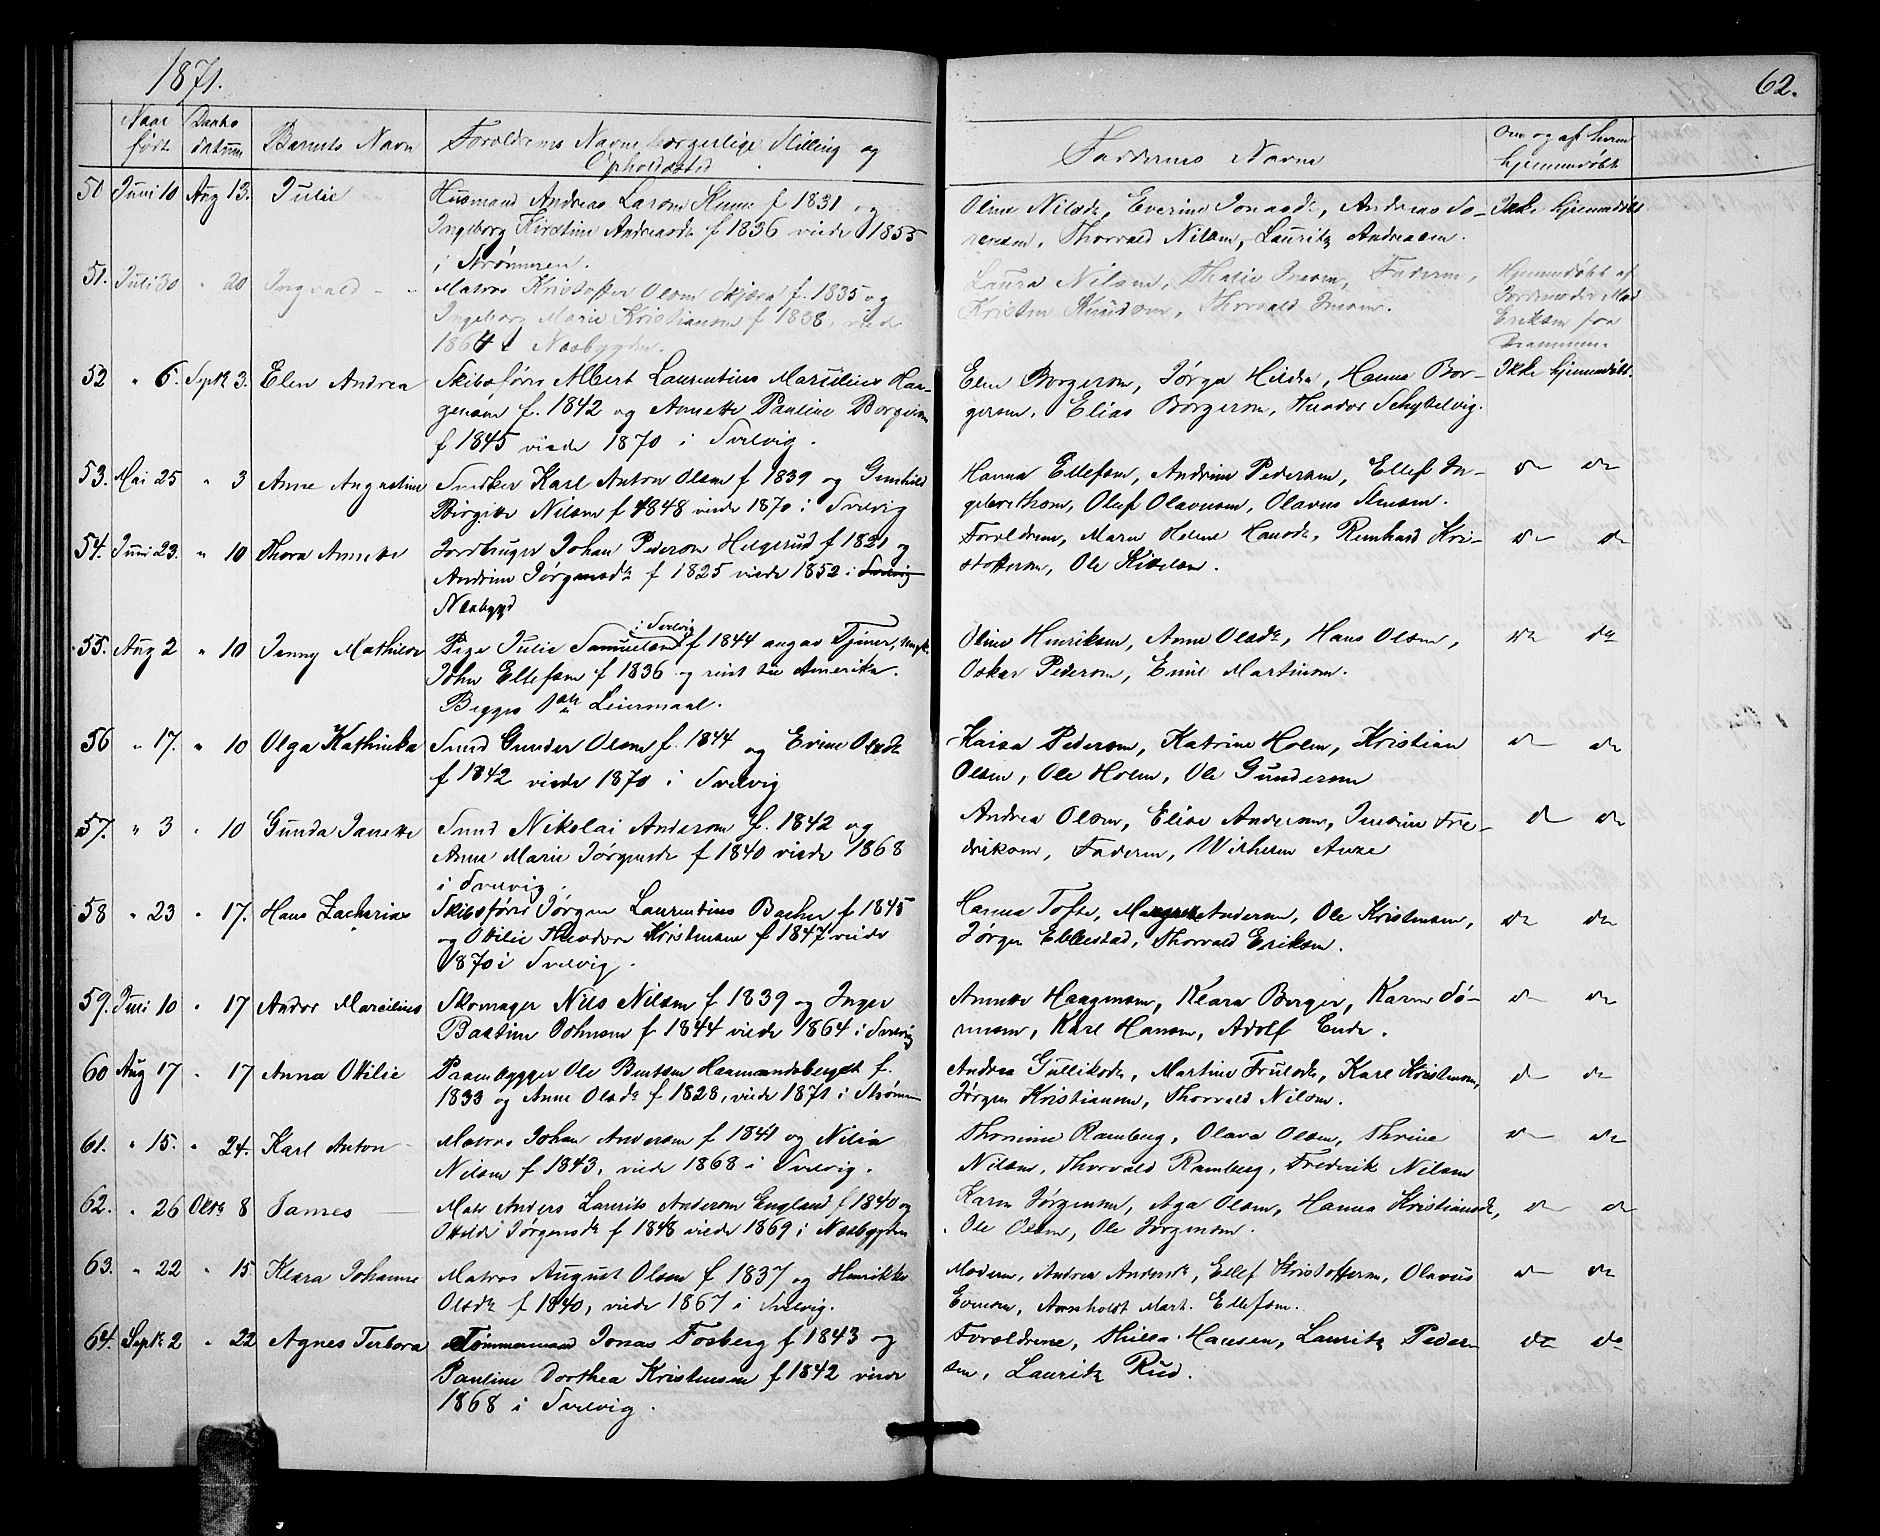 1871.
62.
Naar født
Daabs datum
Barnets Navn
Forældrenes Navne, borgerlige Stilling og Opholdssted
Faddernes Navne
Om og af hvem hjemmedøbt
50 Juni 10 Aug 13. Julie
Husmand Andreas Larsen f 1831 og
Ingeborg Kirstine Andreasdr f 1836 viede 1855
i Strømmen.
Oline Nilsdr, Everine Jonasdr, Andreas Sø-
rensen, Thorvald Nilsen, Lauritz Andreasen.
Ikke hjemmedøbt
51. Juli 30 " 20 Ingvald
Matros Kristoffer Olsen Skjæra f. 1835 og
Ingeborg Marie Kristiansen f 1838, viede
1864 i Næsbygden.
Laura Nilsen, Thalie Jensen, Faderen,
Kristen Knudsen, Thorvald Jensen.
Hjemmedøbt af
Jordemoder Mad
Eriksen fra
Drammen.
52 " 6. Septb 3. Elen Andrea
Skibsfører Albert Laurentius Marcilius Haa-
gensen f. 1842 og Annette Pauline Borgersen
f 1845 viede 1870 i Svelvig.
Elen Borgersen, Jørgen Hilden, Hanna Bor-
gersen, Elias Borgersen, Theodor Schybelvig.
Ikke hjemmedøbt.
53. Mai 25 " 3 Anne Augustine
Snedker Karl Anton Olsen f 1839 og Gunhild
Birgitte Nilsen f 1848 viede 1870 i Svelvig
Hanna Ellefsen, Andrine Pedersen, Ellef In-
gebrethsen, Oluf Olavesen, Olavus Stensen.
do do
54. Juni 23. " 10 Thora Annette
Jordbruger Johan Pedersen Helgerud f 1821 og
Andrine Jørgensdr f 1825 viede 1852 i Svelvig
Næsbygd
Forældrene, Maren Helene Hansdr, Reinhard Kri-
stoffersen, Ole Kittelsen.
do do
55. Aug 2 " 10 Jenny Mathilde
i Svelvig
Pige Julie Samuelsen f 1844 angav Tjener, Ungk.
John Ellefsen f 1836 og reist til Amerika.
Begges 1ste Leiermaal.
Oline Henriksen, Anne Olsdr, Hans Olsen,
Oskar Pedersen, Emil Martinsen.
do do
56 " 17. " 10 Olga Kathinka
Smed Gunder Olsen f. 1844 og Evine Olsdr
f 1842 viede 1870 i Svelvig
Kaisa Pedersen, Katrine Holm, Kristian
Olsen, Ole Holm, Ole Gundersen
do do
57. " 3 " 10 Gunda Janette
Smed Nikolai Andersen f. 1842 og
Anne Marie Jørgensdr f 1840 viede 1868
i Svelvig.
Andrea Olsen, Elise Andersen, Fre-
driksen, Faderen, Wilhelm
do do
58 " 23 " 17. Hans Zacharias
Skibsfører Jørgen Laurentius Bacher f 1845
og Otilie Theodora Kristensen f 1847 viede
1870 i Svelvig.
Hanna Tofte, Margrete Andersen, Ole Kristensen,
Jørgen Ebbestad, Thorvald Eriksen.
do do
59. Juni 10 " 17 Andor Marcilius
Skomager Nils Nilsen f 1839 og Inger
Bastine Johnsen f 1844 viede 1864 i Svelvig
Annette Haagensen, Klara Borger, Karen Sø-
rensen, Karl Hansen, Adolf Ende.
do do
60 Aug 17 " 17 Anna Otilie
Prambygger Ole Berntsen Haamandsberget f.
1833 og Anne Olsdr f 1828, viede 1871 i Strømm
Andrea Gulliksdr, Martine Trulsdr, Karl Kristensen,
Jørgen Kristiansen, Thorvald Nilsen.
do do
61. " 15. " 24. Karl Anton
Matros Johan Andersen f 1841 og Nilia
Nilsen f 1843, viede 1868 i Svelvig.
Thorine Ramberg, Olava Olsen, Thrine
Nilsen, Thorvald Ramberg, Fredrik Nilsen
do do
62. " 26 Oktb 8 James
Matr Anders Laurits Andersen England f 1840 og
Otilde Jørgensdr f 1848 viede 1869 i Næsbygden
Karen Jørgensen, Aga Olsen, Hanna Kristiansdr,
Ole Olsen, Ole Jørgensen.
do do
63. " 22 " 15. Klara Johanne
Matros August Olsen f 1837 og Henrikke
Olsdr f 1840, viede 1867 i Svelvig.
Moderen, Andrea Andersdr, Ellef Kristoffersen, Olavus
Evensen, Arnholdt Mart. Ellefsen.
do do
64. Septb 2 " 22 Agnes Terbora
Tømmermand Jonas Fosberg f 1843 og
Pauline Dorthea Kristensen f 1842 viede
1868 i Svelvig.
Forældrene, Hilla Hansen, Lauritz Peder
sen, Lauritz Rud.
do do